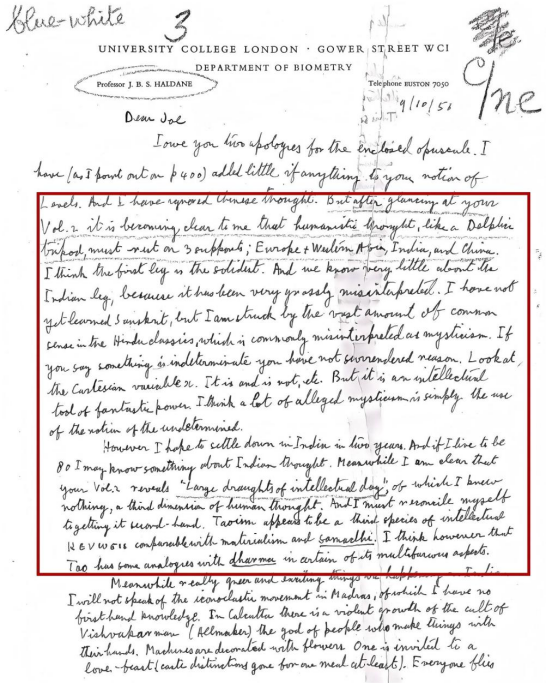 blue-white
3
UNIVERSITY COLLEGE LONDON · GOWER STREET WC1
DEPARTMENT OF BIOMETRY
Professor J. B. S. HALDANE
Telephone EUSTON 7050
9/10/56
C/ne
Dear Joe
I owe you two apologies for the enclosed opuscule. I
have (as I point out on p 400) added little if anything to your notion of
Levels. And I have ignored Chinese thought. But after glancing at your
Vol. 2 it is becoming clear to me that humanistic thought, like a Delphic
tripod, must rest on 3 supports; Europe + Western Asia, India, and China.
I think the first leg is the solidest. And we know very little about the
Indian leg, because it has been very grossly misinterpreted. I have not
yet learned Sanskrit, but I am struck by the vast amount of common
sense in the Hindu classics, which is commonly misinterpreted as mysticism. If
you say something is indeterminate you have not surrendered reason. Look at
the Cartesian variable x. It is and is not, etc. But it is an intellectual
tool of fantastic power. I think a lot of alleged mysticism is simply the use
of the notion of the undetermined.
However I hope to settle down in India in two years. And if I live to be
80 I may know something about Indian thought. Meanwhile I am clear that
your Vol. 2 reveals "Large draughts of intellectual day", of which I knew
nothing, a third dimension of human thought. And I must reconcile myself
to getting it second-hand. Taoism appears to be a third species of intellectual
comparable with materialism and samadhi. I think however that
Tao has some analogies with dharma in certain of its multifarious aspects.
Meanwhile really queer and exciting things are happening in India
I will not speak of the iconoclastic movement in Madras, of which I have no
first hand knowledge. In Calcutta there is a violent growth of the cult of
Vishvakarman (Allmaker) the god of people who make things with
their hands. Machines are decorated with flowers One is invited to a
love-feast (caste distinctions gone for one meal at least). Everyone flies